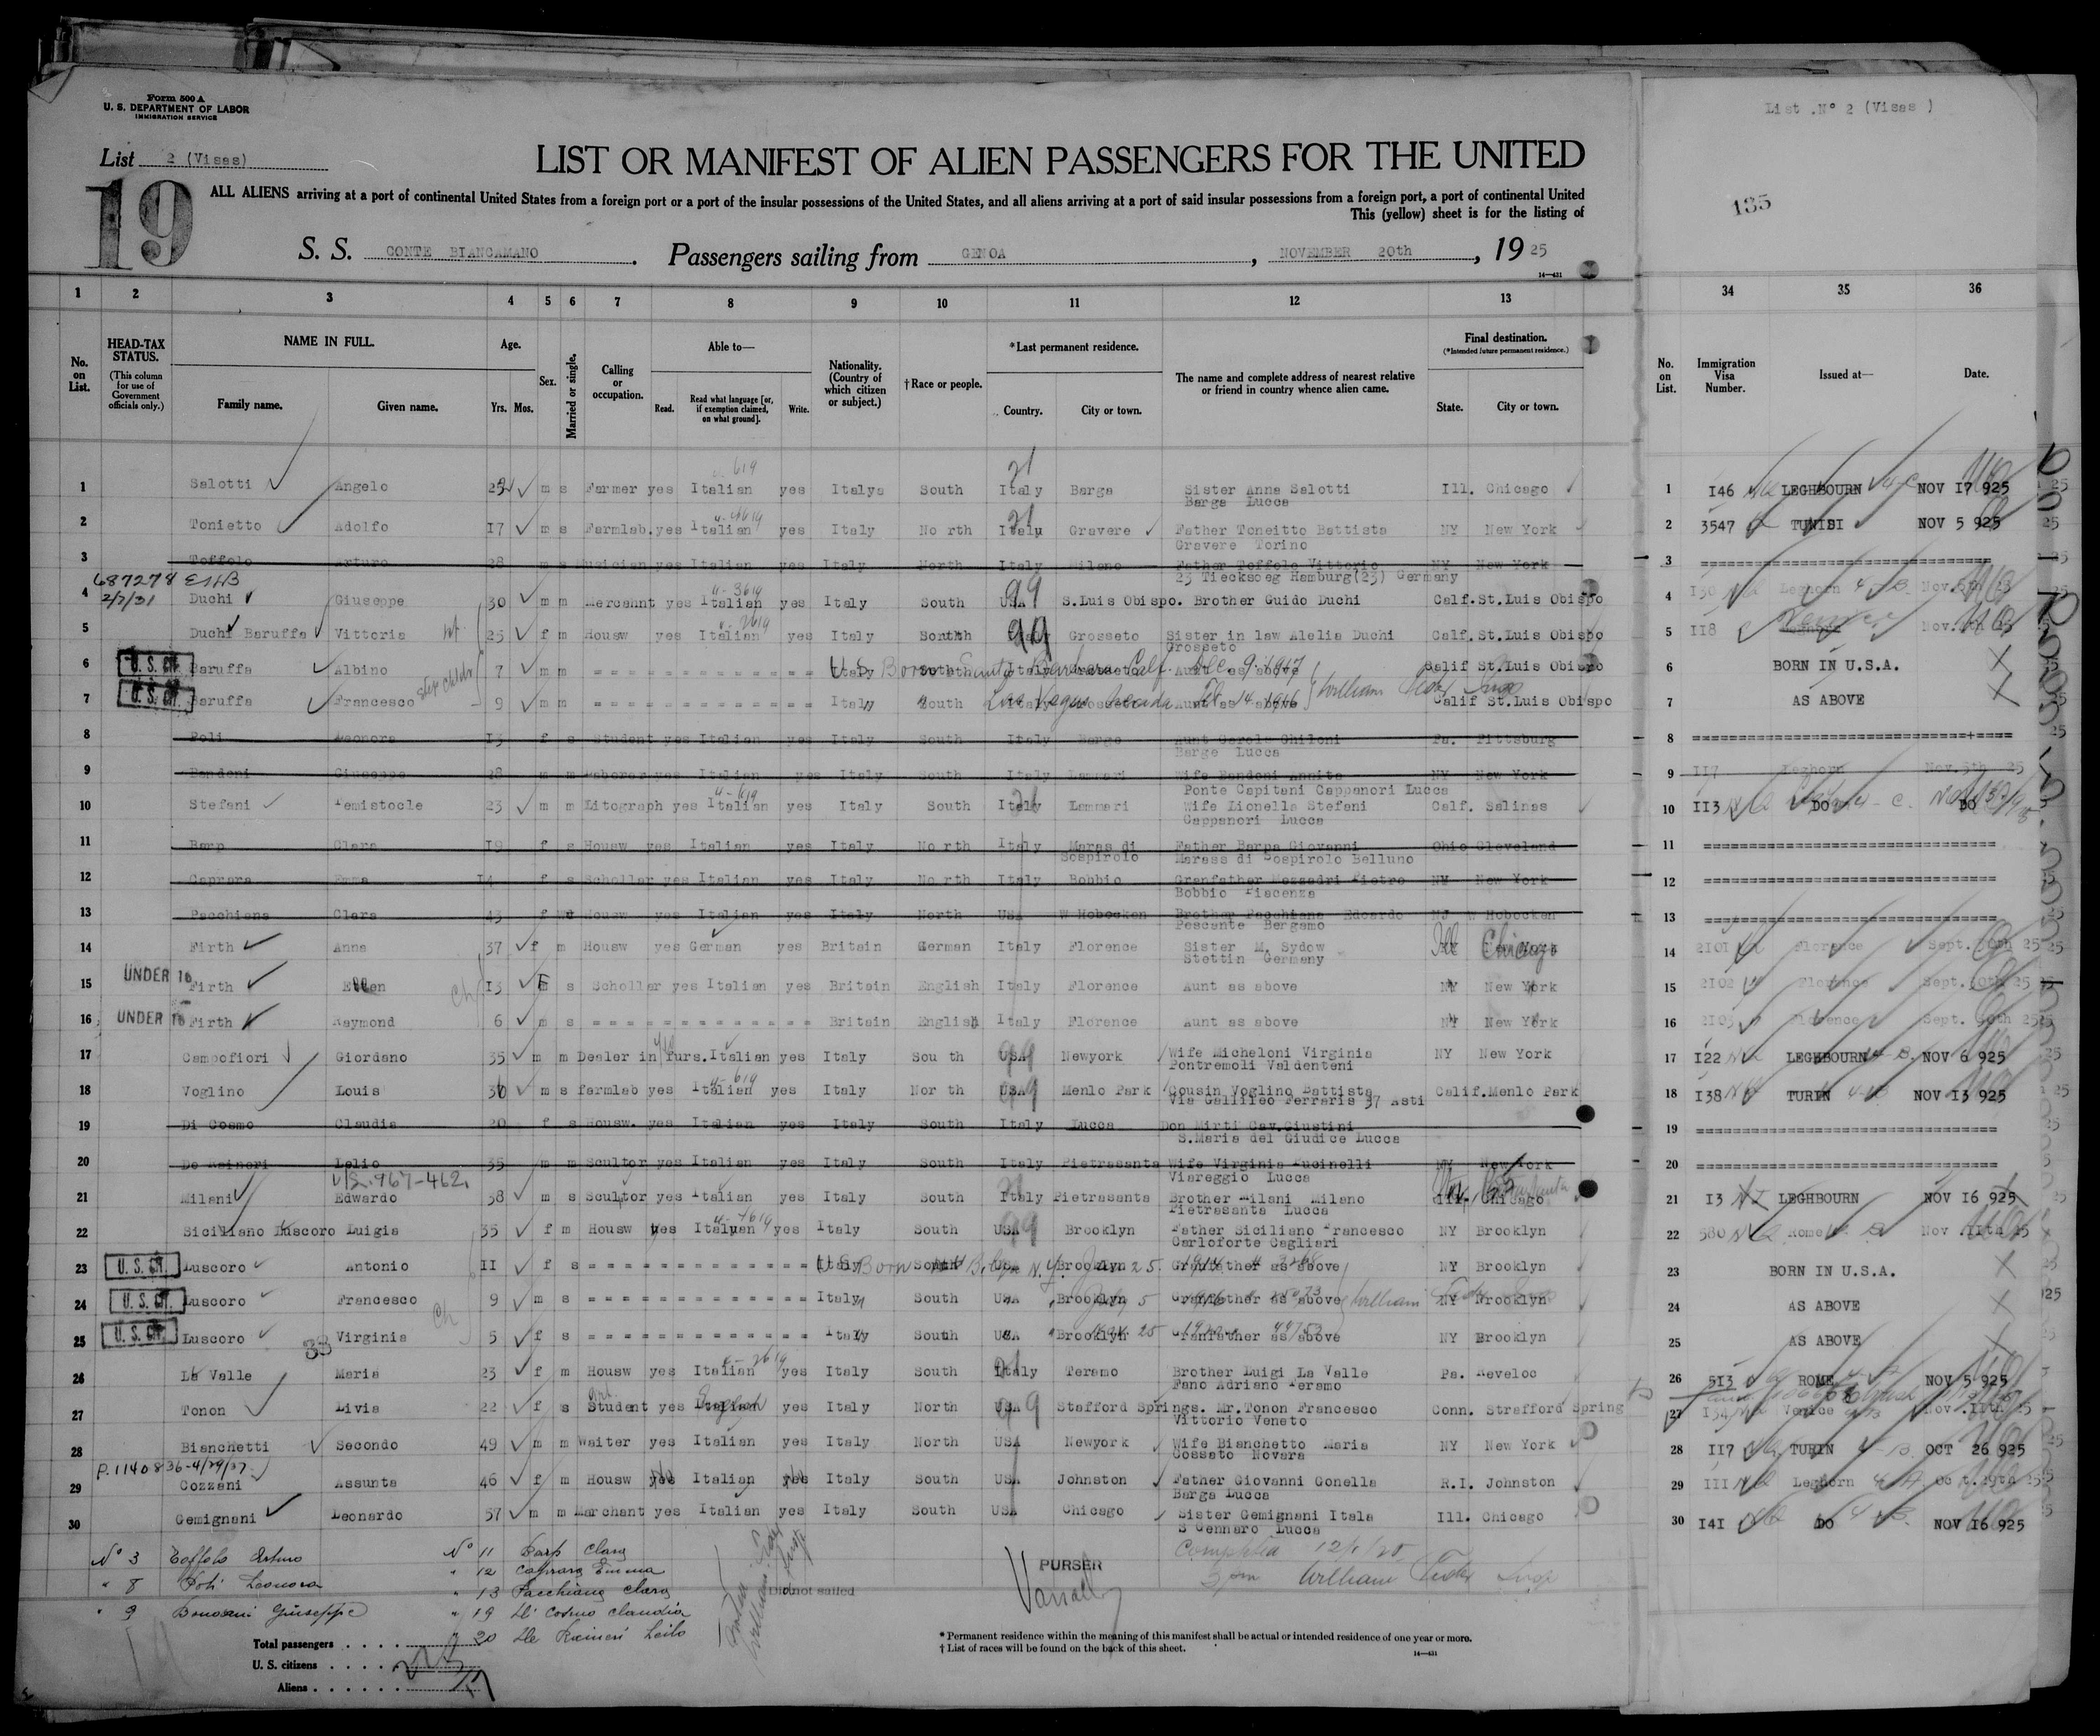 Form 500 A
U. S. DEPARTMENT OF LABOR
IMMIGRATION SERVICE
List 2 (Visas)
19
LIST OR MANIFEST OF ALIEN PASSENGERS FOR THE UNITED
ALL ALIENS arriving at a port of continental United States from a foreign port or a port of the insular possessions of the United States, and all aliens arriving at a port of said insular possessions from a foreign port, a port of continental United
This (yellow) sheet is for the listing of
S. S. CONTE BIANCAMANO . Passengers sailing from GENOA , NOVEMBER 20th , 19 25
14—431
List .N° 2 (Visas )
135
1 2 3 4 5 6 7 8 9 10 11 12 13 34 35 36
No. on List.
HEAD-TAX STATUS. (This column for use of Government officials only.)
NAME IN FULL. Family name. Given name.
Age. Yrs. Mos.
Sex.
Married or single.
Calling or occupation.
Able to— Read. Read what language [or, if exemption claimed, on what ground]. Write.
Nationality. (Country of which citizen or subject.)
†Race or people.
*Last permanent residence. Country. City or town.
The name and complete address of nearest relative or friend in country whence alien came.
Final destination. (*Intended future permanent residence.) State. City or town.
No. on List.
Immigration Visa Number.
Issued at—
Date.
1 Salotti Angelo m s Farmer yes Italian yes Italys South Italy Barga Sister Anna Salotti Ill. Chicago 1 I46 LEGHBOURN NOV I7 925
Barga Lucca
2 Tonietto Adolfo I7 m s Farmlab. yes Italian yes Italy No rth Italy Gravere Father Toneitto Battista NY New York 2 3547 TUNISI NOV 5 925
Gravere Torino
3 Toffolo Arturo 28 m s Musician yes Italian yes Italy North Italy Milano Father Toffolo Vittorio NY New York 3
23 Tiecksoeg Hamburg(23) Germany
687278
2/7/31
4 Duchi Giuseppe 30 m m Mercehnt yes Italian yes Italy South USA S.Luis Obispo. Brother Guido Duchi Calf. St.Luis Obispo 4 Leghorn
5 Duchi Baruffa Vittoria 25 f m Housw yes Italian yes Italy South Grosseto Sister in law Alelia Duchi Calf. St.Luis Obispo 5 II8
Grosseto
6 U. S. CIT. Baruffa Albino 7 m m Italy South U.S. Born Santa Barbara Calf. Dec. 9. 1917 Aunt as above Calif St.Luis Obispo 6 BORN IN U.S.A.
step childr
7 U. S. CIT. Baruffa Francesco 9 m m Italy South Las Vegas Nevada Aunt as above Calif St.Luis Obispo 7 AS ABOVE
8 Poli Leonora I3 f s Student yes Italian yes Italy South Italy Barga Aunt Carola Ghiloni Pa. Pittsburg 8
Barga Lucca
9 Bandoni Giuseppe 28 m m Laborer yes Italian yes Italy South Italy Lammari Wife Bandoni Annita NY New York 9 II7 Leghorn Nov.5th 25
Ponte Capitani Cappanori Lucca
10 Stefani Temistocle 23 m m Litograph yes Italian yes Italy South Italy Lammari Wife Lionella Stefani Calf. Salinas 10 II3 DO DO
Cappanori Lucca
11 Barp Clara I9 f s Housw yes Italian yes Italy No rth Italy Maras di Sospirolo Father Barpa Giovanni Ohio Cleveland 11
Marass di Sospirolo Belluno
12 Caprara Emma I4 f s Schollar yes Italian yes Italy No rth Italy Bobbio Granfather Mozzadri Pietro NY New York 12
Bobbio Piacenza
13 Pacchiana Clara 43 f Housw yes Italian yes Italy North USA W Hobocken Brother Pacchiana Edoardo NJ W Hobocken 13
Pescante Bergamo
14 Firth Anna 37 f m Housw yes German yes Britain German Italy Florence Sister M. Sydow Ill Chicago 14 2I0I Florence Sept. 30th 25
Stettin Germany
UNDER 16
15 Firth Ellen I3 F s Schollar yes Italian yes Britain English Italy Florence Aunt as above NY New York 15 2I02 Florence Sept. 30th 25
16 UNDER 16 Firth Raymond 6 m s Britain English Italy Florence Aunt as above NY New York 16 2I03 Florence Sept. 30th 25
17 Campofiori Giordano 35 m m Dealer in furs. Italian yes Italy Sou th USA Newyork Wife Micheloni Virginia NY New York 17 I22 LEGHBOURN NOV 6 925
Pontremoli Valdenteni
18 Voglino Louis 36 m s farmlab yes Italian yes Italy Nor th USA Menlo Park Cousin Voglino Battista Calif. Menlo Park 18 I38 TURIN NOV I3 925
Via Galilleo Ferraris 37 Asti
19 Di Cosmo Claudia 20 f s Housw. yes Italian yes Italy South Italy Lucca Don Mirti Cav.Giustini 19
S.Maria del Giudice Lucca
20 De Raineri Lelio 35 m m Scultor yes Italian yes Italy South Italy Pietrasanta Wife Virginia Pucinelli NY New York 20
Viareggio Lucca
21 Milani Edwardo 38 m s Sculptor yes Italian yes Italy South Italy Pietrasanta Brother Milani Milano Chicago 21 I3 LEGHBOURN NOV I6 925
Pietrasanta Lucca
22 Siciliano Luscoro Luigia 35 f m Housw yes Italyan yes Italy South USA Brooklyn Father Siciliano Francesco NY Brooklyn 22 580 Rome Nov .IIth 25
Carloforte Cagliari
23 U. S. CIT. Luscoro Antonio II f s Italy South Brooklyn Granfather as above NY Brooklyn 23 BORN IN U.S.A.
24 U. S. CIT. Luscoro Francesco 9 m s Italy South USA Brooklyn Granfather as above NY Brooklyn 24 AS ABOVE
25 U. S. CIT. Luscoro Virginia 5 f s Italy South USA Brooklyn Granfather as above NY Brooklyn 25 AS ABOVE
26 La Valle Maria 23 f m Housw yes Italian yes Italy South Italy Teramo Brother Luigi La Valle Pa. Reveloc 26 5I3 ROME NOV 5 925
Fano Adriano Teramo
27 Tonon Livia 22 f s Student yes English yes Italy North USA Stafford Springs. Mr.Tonon Francesco Conn. Strafford Spring 27 Venice Nov.IIth 25
Vittorio Veneto
28 Bianchetti Secondo 49 m m Waiter yes Italian yes Italy North USA Newyork Wife Bianchetto Maria NY New York 28 II7 TURIN OCT 26 925
Cossato Novara
29 Cozzani Assunta 46 f m Housw Italian Italy South USA Johnston Father Giovanni Gonella R.I. Johnston 29 III Leghorn Oc t.29th 25
Barga Lucca
30 Gemignani Leonardo 57 m m Marchant yes Italian yes Italy South USA Chicago Sister Gemignani Itala Ill. Chicago 30 I4I DO NOV I6 925
S Gennaro Lucca
N° 3 Toffolo Arturo N° 11 Barp Clara
" 8 Poli Leonora " 12 Caprara Emma
" 13 Pacchiana Clara
" 9 Giuseppe " 19 Di Cosmo Claudia
" 20 De Raineri Leilo
Did not sailed
PURSER
Completed 12/1/25
3 pm William
Total passengers
U. S. citizens
Aliens
* Permanent residence within the meaning of this manifest shall be actual or intended residence of one year or more.
† List of races will be found on the back of this sheet.
14—431